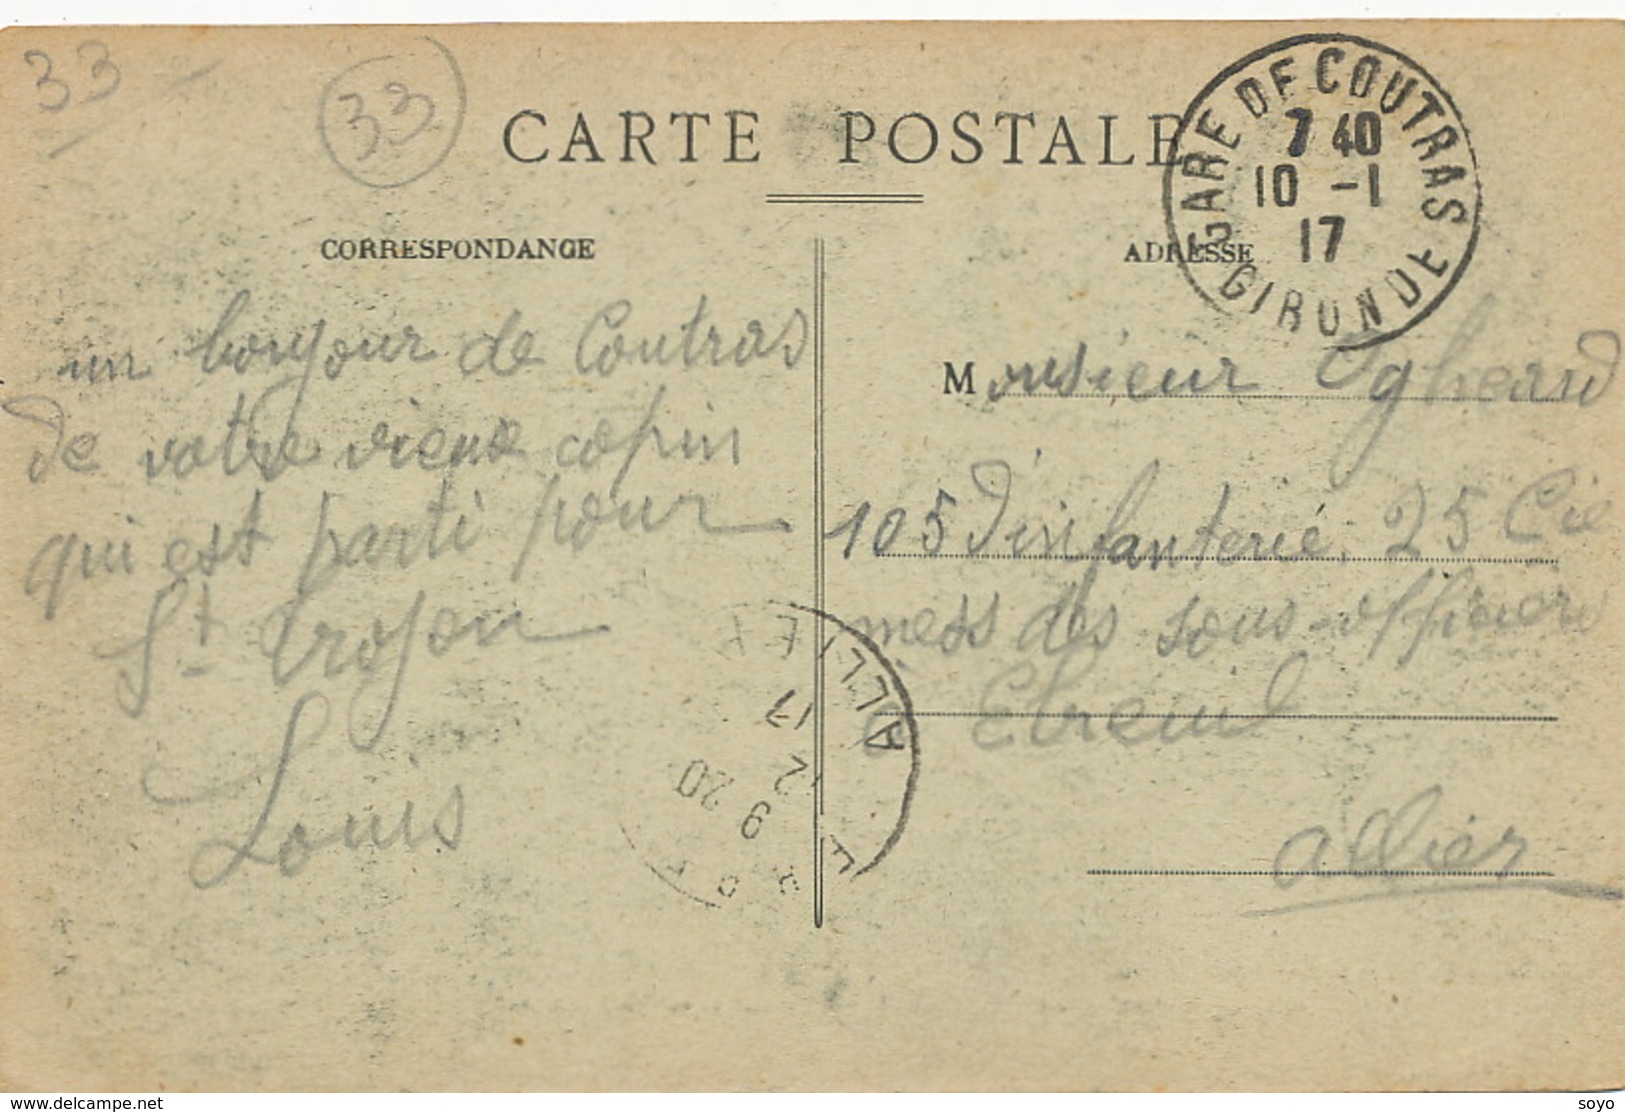 33
33
CARTE POSTALE
GARE DE COUTRAS
7 40
10 -1
17
GIRONDE
CORRESPONDANCE
ADRESSE
un bonjour de Coutras
de votre vieux copin
qui est parti pour
St Trojan
Louis
Monsieur Ygheard
105 D'infanterié. 25 Cie
mess des sous-officiers
à Ebreuil
allier
ALLIER
9 20
12
17
delcampe.net
soyo